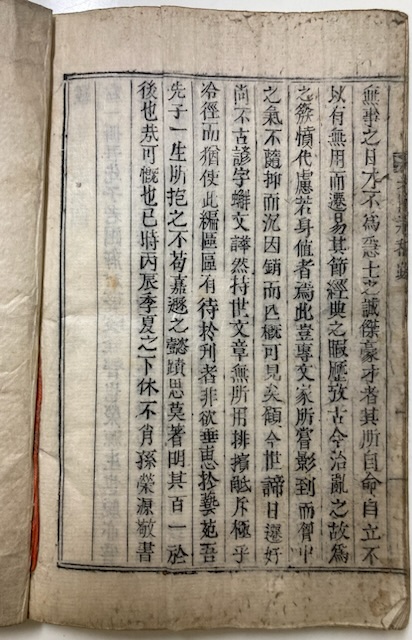 無事之日才不爲惡士之誠傑豪才者其所自命自立不
以有無用而遷易其節經典之暇歷攷古今治亂之故爲
之發憤代慮若身值者焉此豈專文家所嘗影到而胷中
之氣不隨抑而沉因銷而亡概可見矣顧今世諦日遷好
尙不古諺字僻文譁然持世文章無所用排擯觝斥極乎
冷徑而猶使此編區區有待於刋者非欲垂惠於藝苑吾
先子一生所抱之不苟嘉遯之懿蹟思莫著明其百一於
後也哉可慨也已時丙辰季夏之下休不肖孫榮源敬書